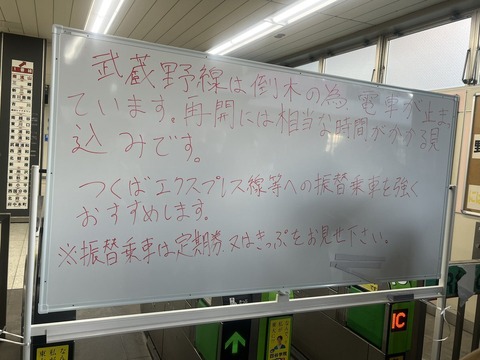 武蔵野線は倒木の為、電車が止まっ
ています。再開には相当な時間がかかる見
込みです。
つくばエクスプレス線等への振替乗車を強く
おすすめします。
※振替乗車は定期券又はきっぷをお見せ下さい。
IC